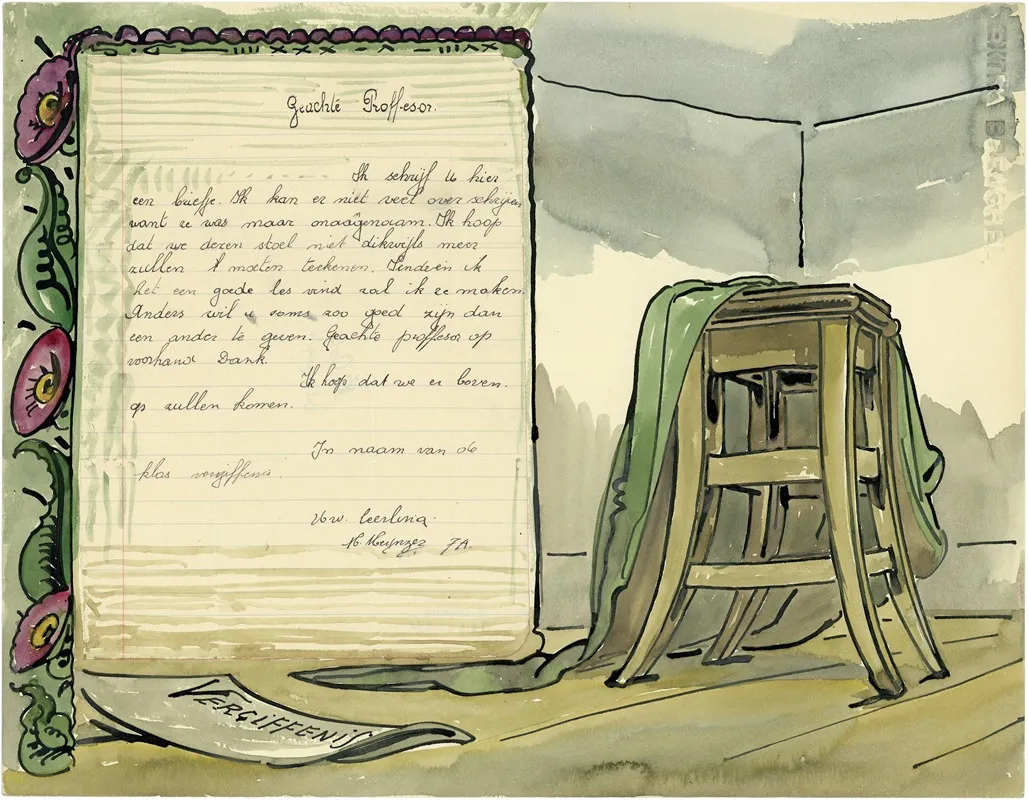 Geachte Proffesor.
Ik schrijf U hier
een briefje. Ik kan er niet veel over schrijven
want ze was maar onaagenaam. Ik hoop
dat we dezen stoel niet dikwijls meer
zullen moeten teekenen. Indien ik
het een goede les vind zal ik ze maken.
Anders wil u soms zoo goed zijn dan
een ander te geven. Geachte proffesor op
voorhand Dank.
Ik hoop dat we er boven
op zullen komen.
In naam van de
klas vergiffenis.
Uw leerling
7A.
VERGIFFENIS